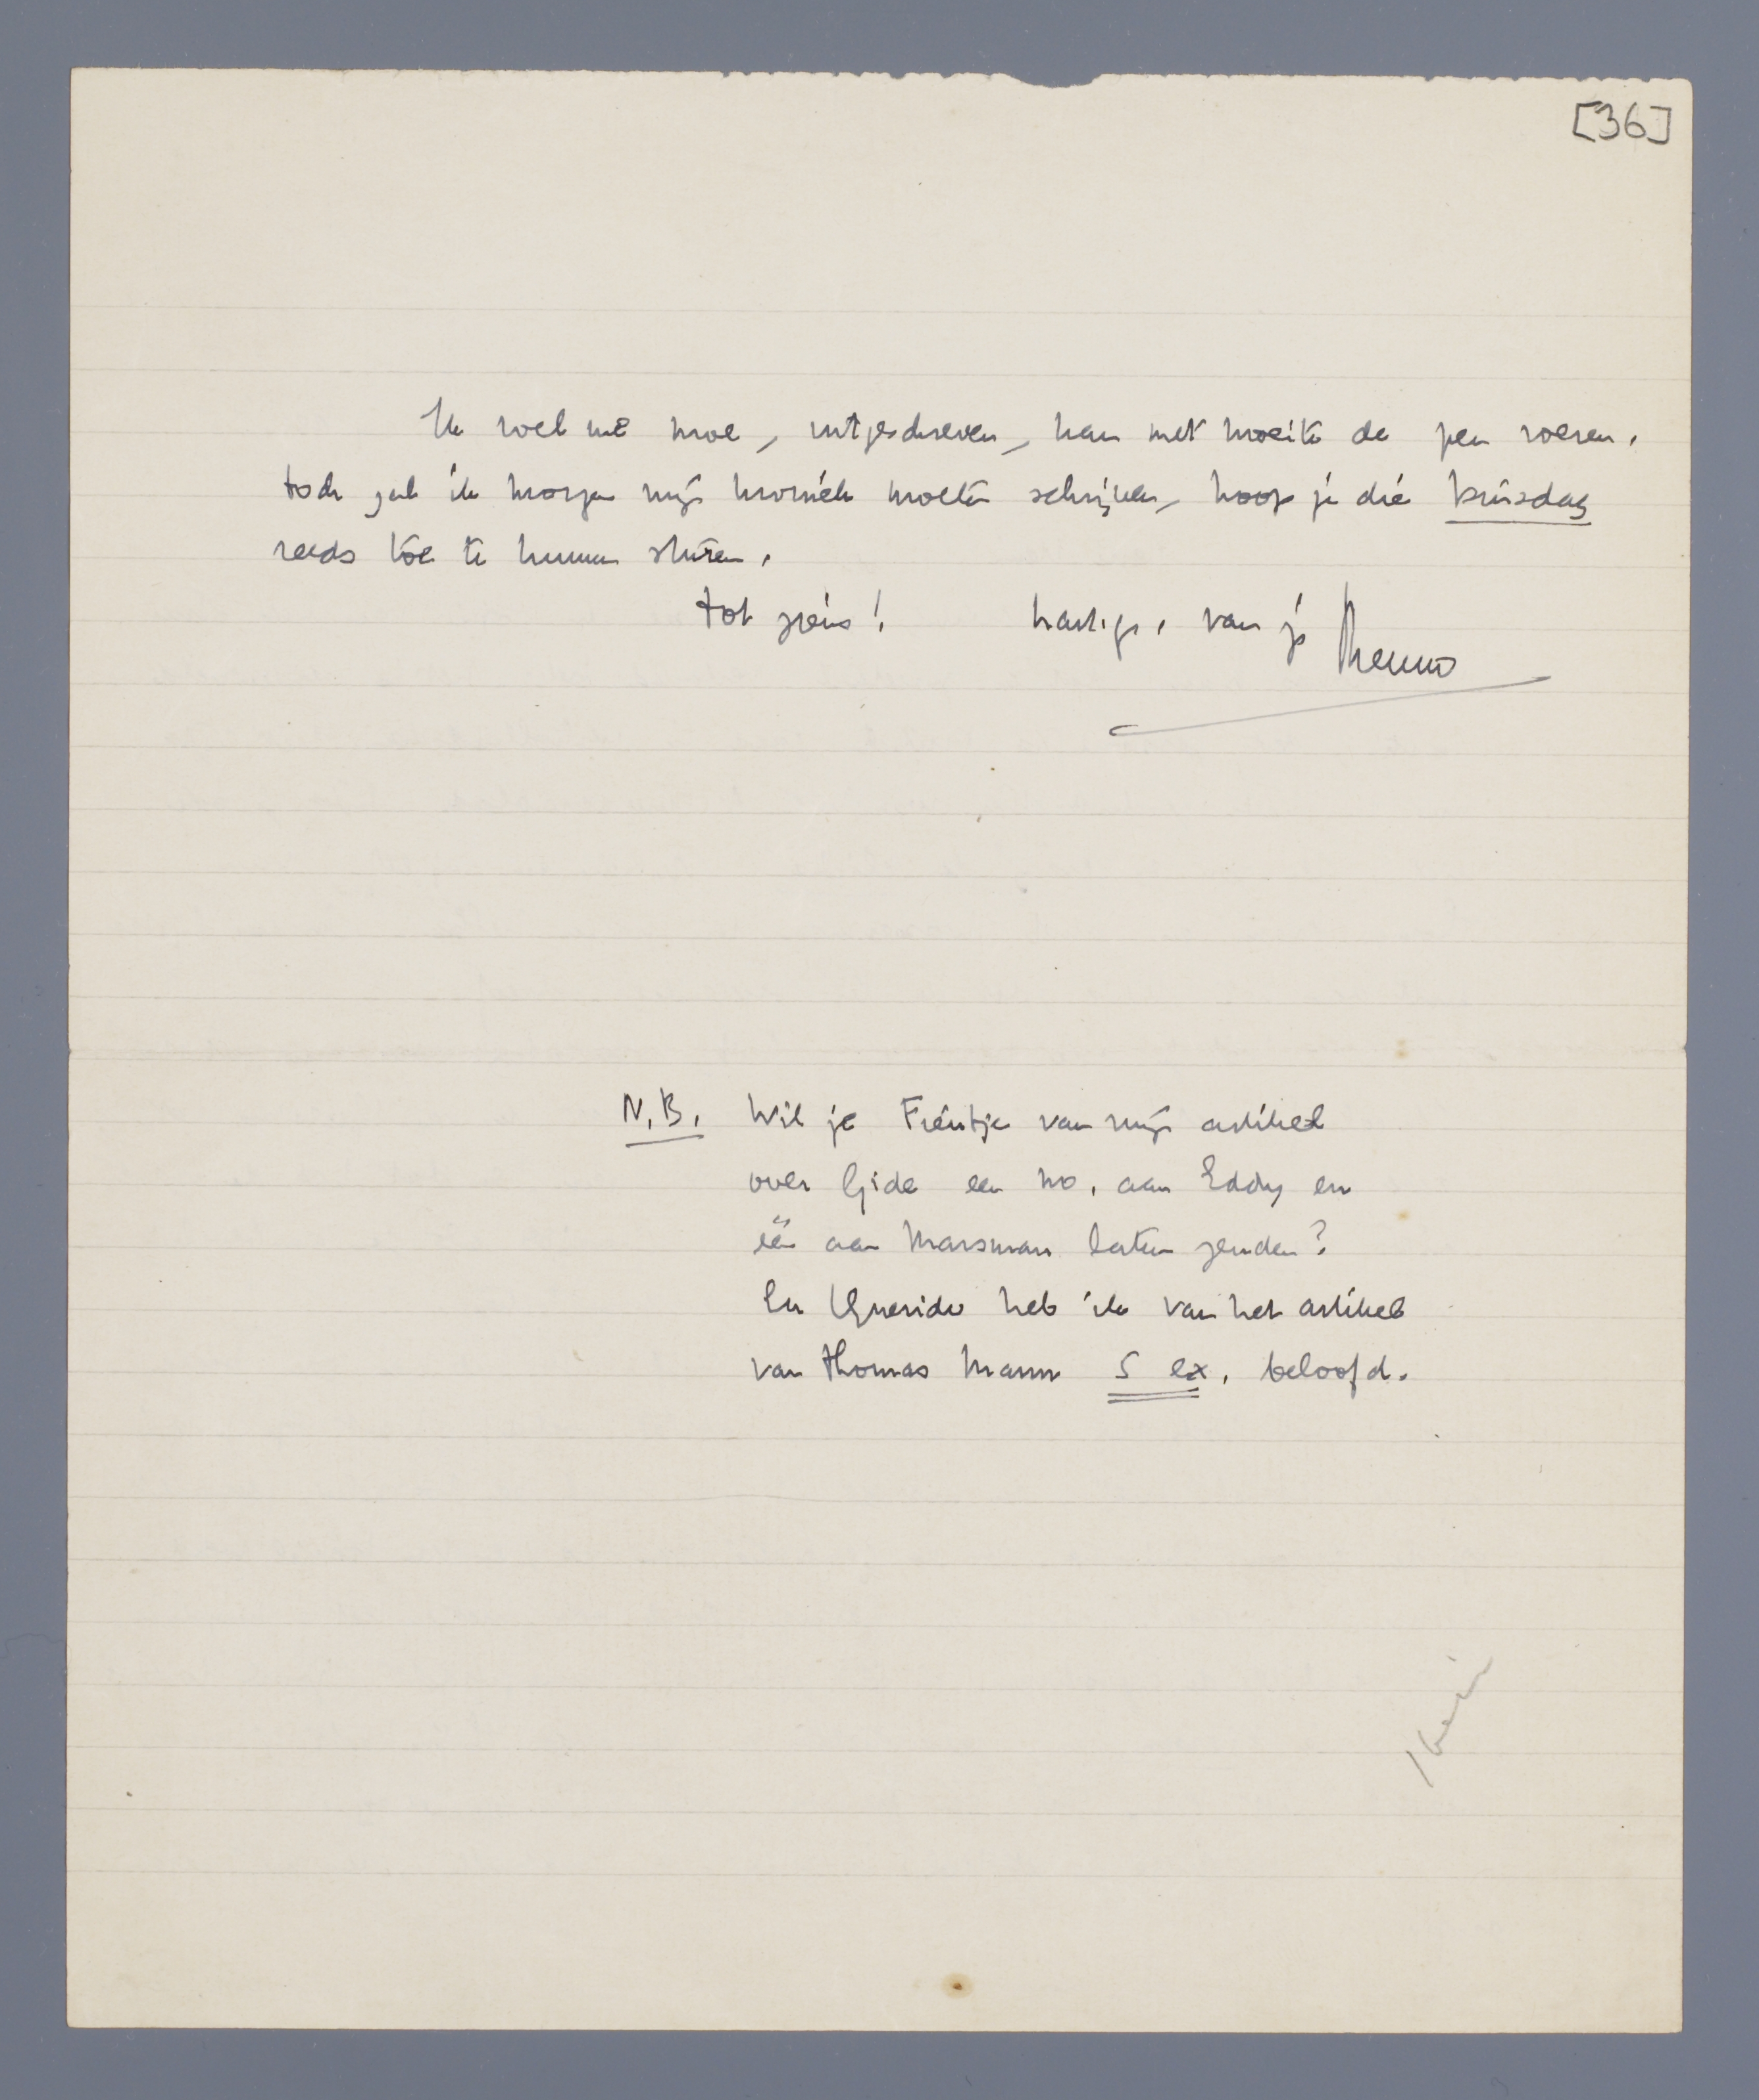 [36]
Ik voel me moe, uitgeschreven, kan met moeite de pen voeren.
toch zal ik morgen mijn kroniek moeten schrijven, hoop je die Dinsdag
reeds toe te kunnen sturen.
tot ziens! hartegr. van je Menno
N.B. Wil je Fientje van mijn artikel
over Gide een no. aan Eddy en
één aan Marsman laten zenden?
En Querido heb ik van het artikel
van Thomas Mann 5 ex. beloofd.